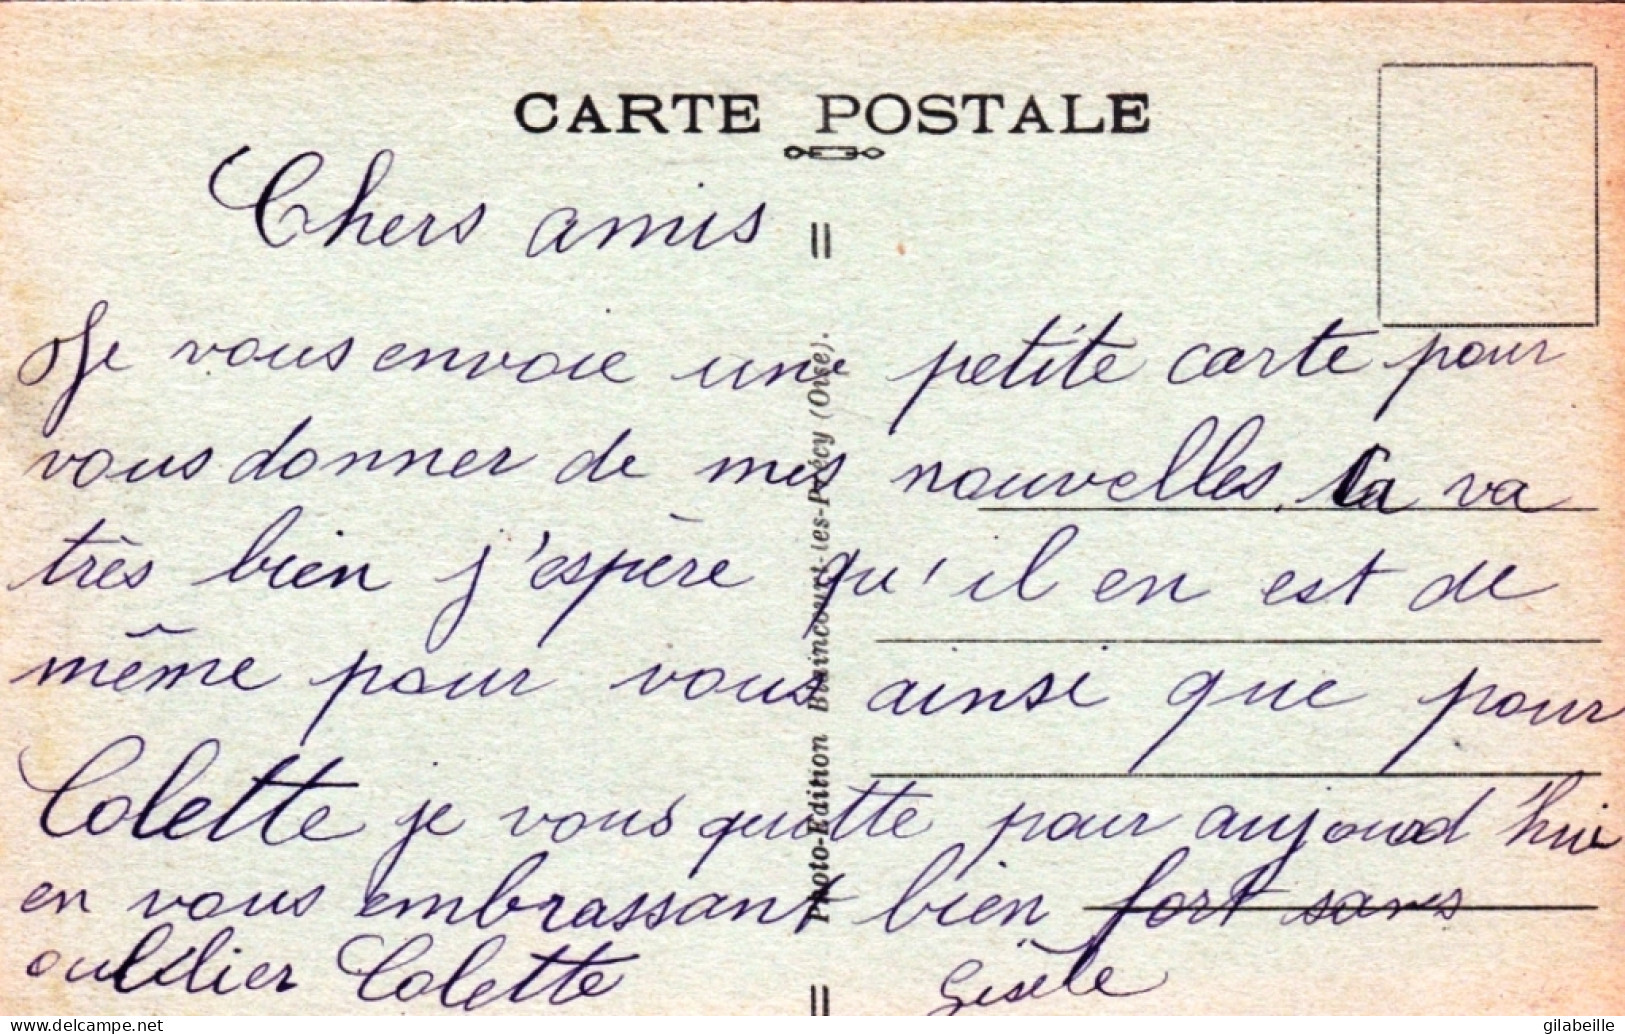 CARTE POSTALE
Chers amis
Je vous envoie une petite carte pour
vous donner de mes nouvelles. Ca va
très bien j'espère qu'il en est de
même pour vous ainsi que pour
Colette je vous quitte pour aujourd'hui
en vous embrassant bien fort sans
oublier Colette Gisèle
Photo-Edition Blaincourt-les-Précy (Oise).
https://www.delcampe.net
gilabeille